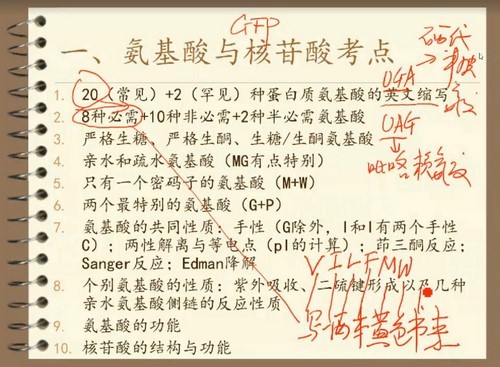 GFP
一、氨基酸与核苷酸考点
1. 20（常见）+2（罕见）种蛋白质氨基酸的英文缩写
2. 8种必需+10种非必需+2种半必需氨基酸
3. 严格生糖、严格生酮、生糖/生酮氨基酸
4. 亲水和疏水氨基酸（MG有点特别）
5. 只有一个密码子的氨基酸（M+W）
6. 两个最特别的氨基酸（G+P）
7. 氨基酸的共同性质：手性（G除外，I和I有两个手性
C）；两性解离与等电点（pI的计算）；茚三酮反应；
Sanger反应；Edman降解
8. 个别氨基酸的性质：紫外吸收、二硫键形成以及几种
亲水氨基酸侧链的反应性质
9. 氨基酸的功能
10. 核苷酸的结构与功能
UGA
硒代
半胱
氨酸
UAG
吡咯赖氨酸
VILFMW
写一两本黄色书来